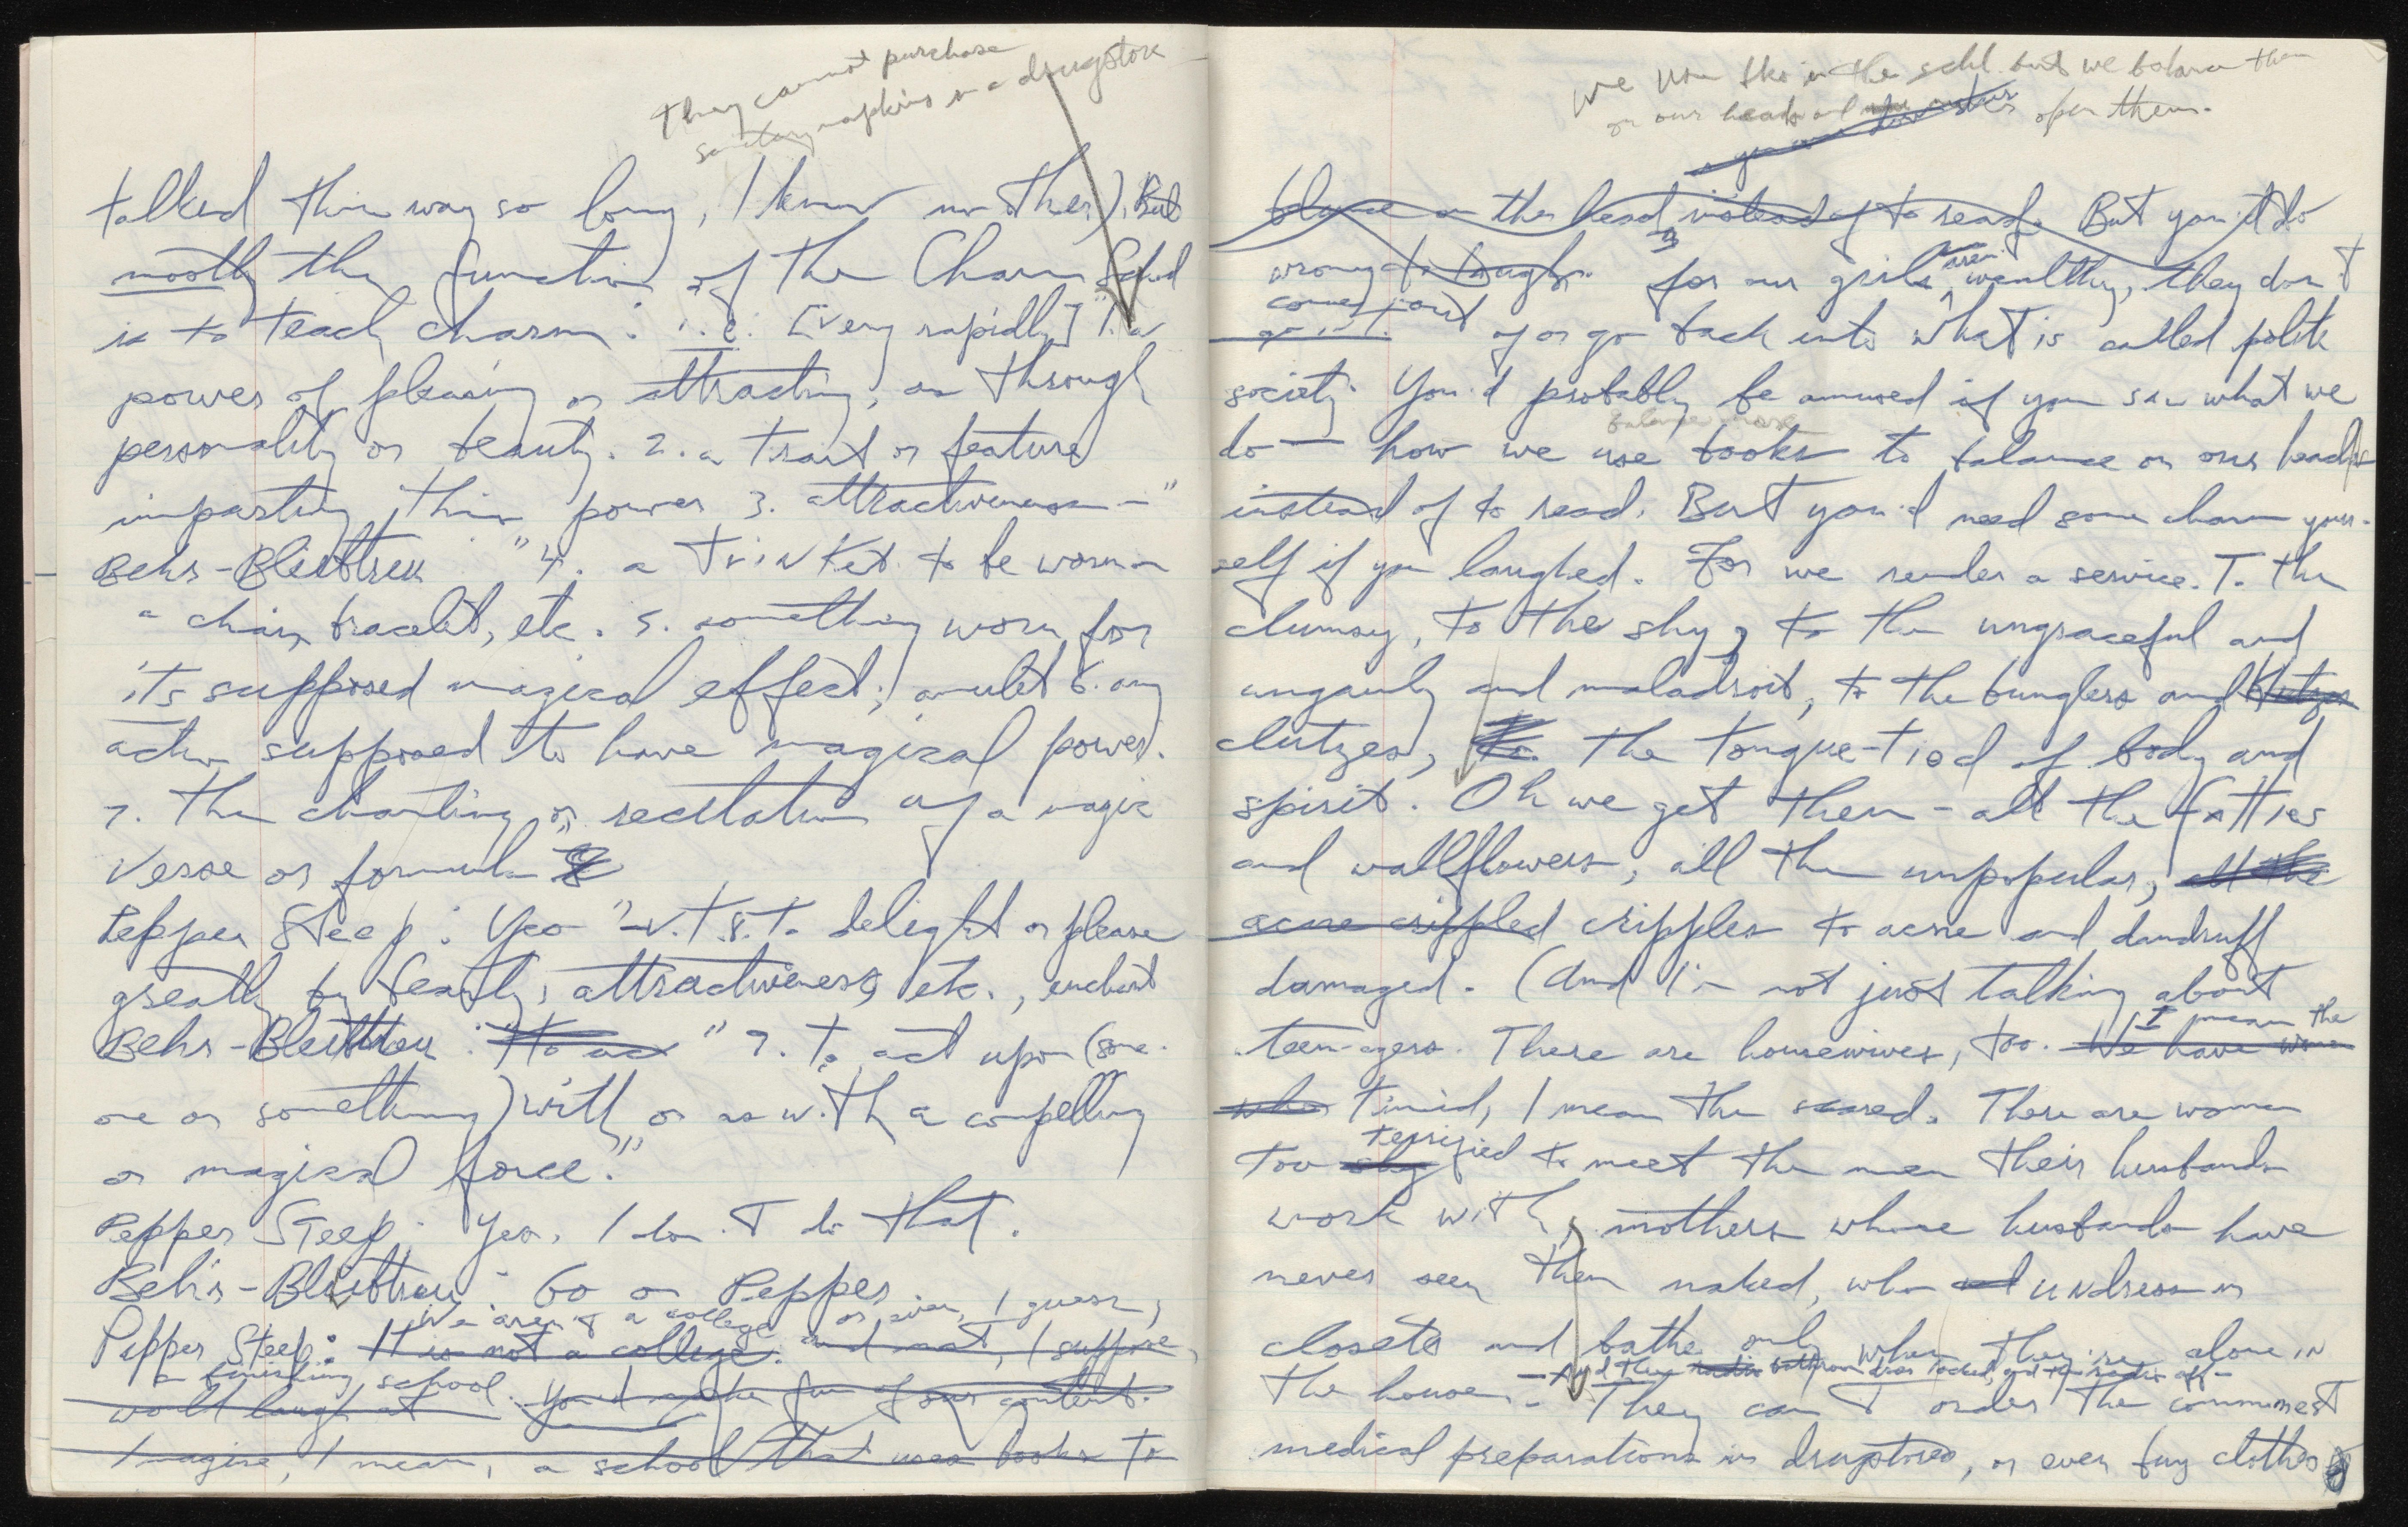 they cannot purchase
sanitary napkins in a drugstore
talked this way so long, I know no other). But
mostly the function of the Charm School
is to teach charm: i.e. [very rapidly] "1. a
power of pleasing or attracting, as through
personality or beauty. 2. a trait or feature
imparting this power 3. attractiveness—"
Behr-Bleibtreu: "4. a trinket to be worn on
a chain, bracelet, etc. 5. something worn for
its supposed magical effect; amulet 6. any
action supposed to have magical power.
7. the chanting or recitation of a magic
verse or formula
Pepper Steep: Yes "—v.t. 8. to delight or please
greatly by beauty, attractiveness, etc., enchant
Behr-Bleibtreu: "to act "9. to act upon (some-
one or something) with or as with a compelling
or magical force."
Pepper Steep: Yes, I don't do that.
Behr-Bleibtreu: Go on Pepper
We aren't a college or even, I guess,
Pepper Steep: It is not a college. and not, I suppose,
a finishing school. You'd make fun of our content.
would laugh at
Imagine, I mean, a school that uses books to
We use in the schl but we balance them
on our heads and open them.
balance on the head instead of to read. But you'd do
wrong to laugh. for our girls aren't wealthy, they don't
come out
go out of or go back into what is called polite
society. You'd probably be amused if you saw what we
balance more
do — how we use books to balance on our heads
instead of to read. But you'd need some charm your-
self if you laughed. For we render a service. To the
clumsy, to the shy, to the ungraceful and
ungainly and maladroit, to the bunglers and klutzes
clutzes, to the tongue-tied of body and
spirit. Oh we get them — all the fatties
and wallflowers, all the unpopular, all the
acne crippled cripples to acne and dandruff
damaged. (And I'm not just talking about
I mean the
teen-agers. There are housewives, too. We have women
who timid, I mean the scared. There are women
terrified
too shy to meet the men their husbands
work with, mothers whose husbands have
never seen them naked, who undress in
closets and bathe only when they're alone in
—And they bathroom door locked, and radio off—
the house. — They can't order the commonest
medical preparations in drugstores, or even buy clothes